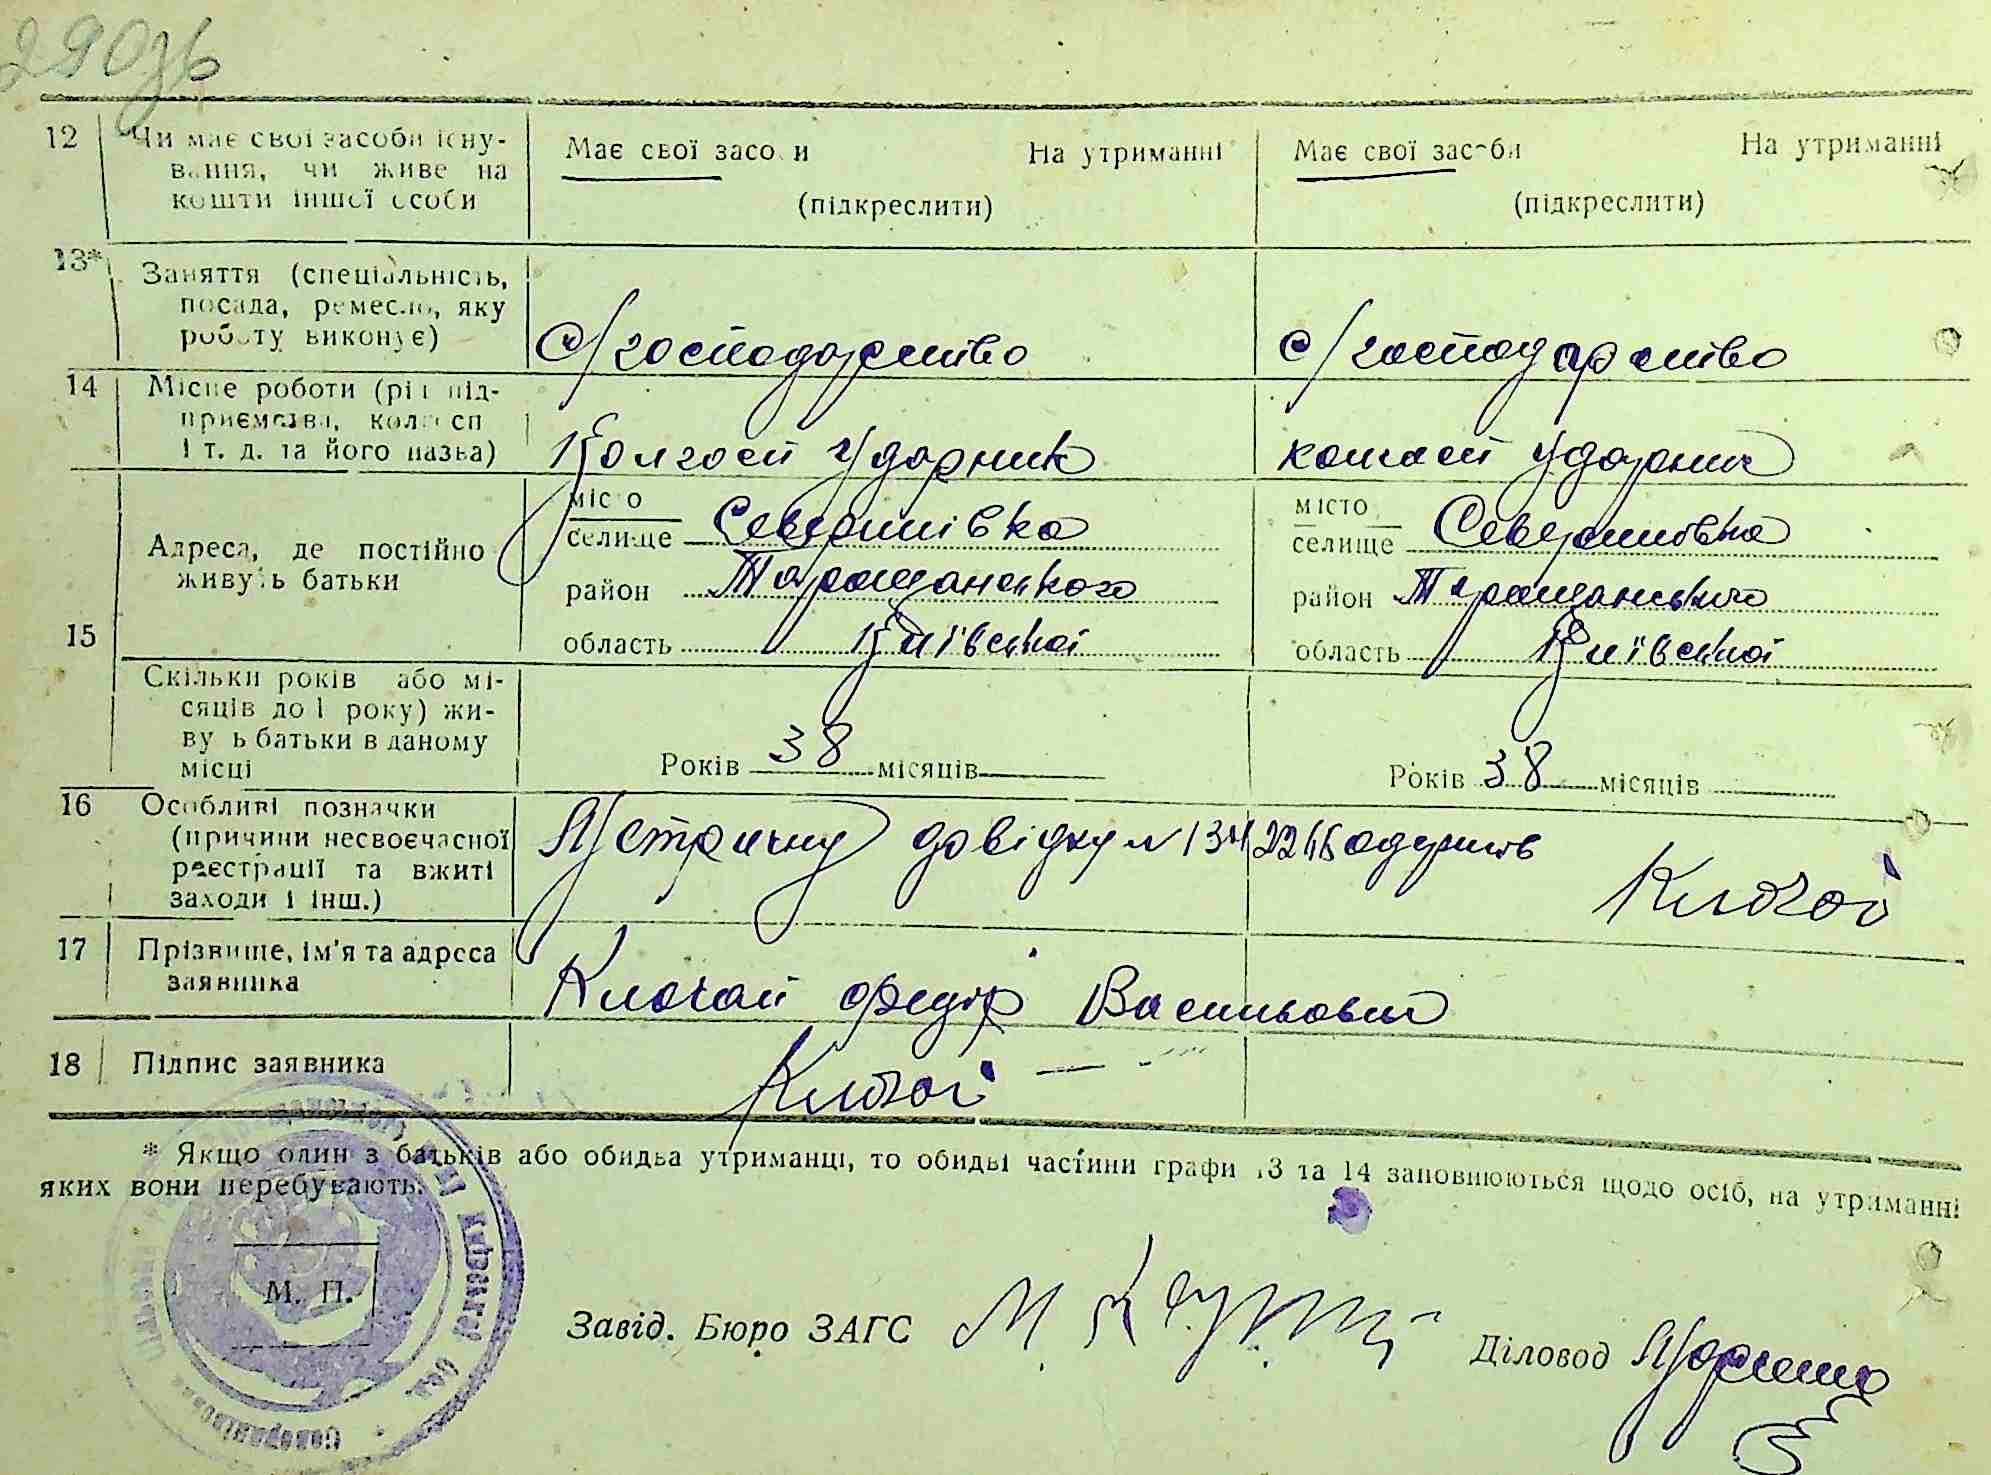 290зв
12 Чи має свої засоби існу-
вання, чи живе на
кошти іншої особи
Має свої засоби На утриманні Має свої засоби На утриманні
(підкреслити) (підкреслити)
13* Заняття (спеціальність,
посада, ремесло, яку
роботу виконує)
С/господарство с/господарство
14 Місце роботи (рід під-
приємства, колгосп
і т. д. та його назва)
Колгосп Ударник колгосп Ударник
15 Адреса, де постійно
живуть батьки
місто місто
селище Северинівка селище Северинівка
район Таращанського район Таращанського
область Київської область Київської
Скільки років або мі-
сяців до 1 року) жи-
вуть батьки в даному
місці
Років 38 місяців Років 38 місяців
16 Особливі позначки
(причини несвоєчасної
реєстрації та вжиті
заходи і інш.)
Метричну довідку № одержав
Ключай
17 Прізвище, ім'я та адреса
заявника
Ключай Федір Васильович
18 Підпис заявника
Ключай
* Якщо один з батьків або обидва утриманці, то обидві частини графи 13 та 14 заповнюються щодо осіб, на утриманні
яких вони перебувають.
М. П.
Завід. Бюро ЗАГС Діловод
Київської Обл.